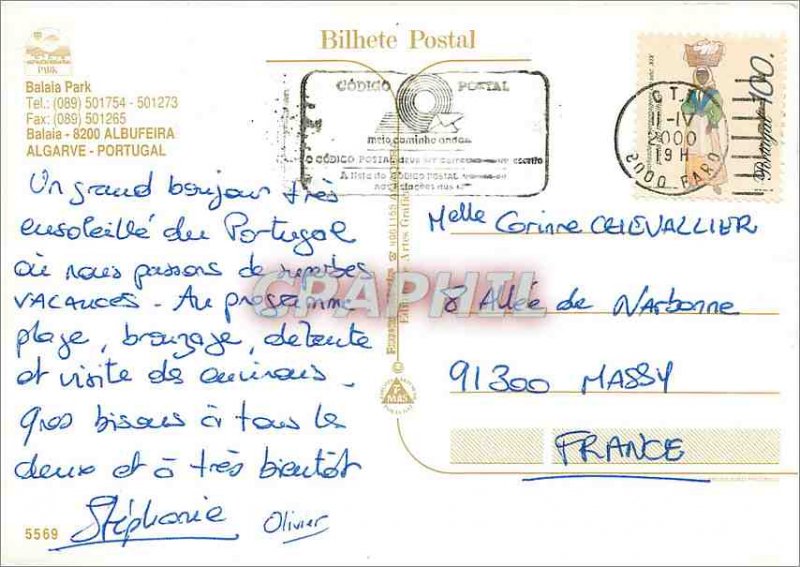 PARK
Balaia Park
Tel.: (089) 501754 - 501273
Fax: (089) 501265
Balaia - 8200 ALBUFEIRA
ALGARVE - PORTUGAL
Bilhete Postal
CÓDIGO POSTAL
meio caminho andado
O CÓDIGO POSTAL deve ser escrito
A lista do CÓDIGO POSTAL
nas Estações
CT
11-IV
2000
19H
2000 FARO
Portugal 100.
Un grand bonjour très
ensoleillé du Portugal
où nous passons de superbes
VACANCES - Au programme
plage, bronzage, détente
et visite des environs -
Gros bisous à tous les
deux et à très bientôt
Stéphanie Olivier
5569
Artes Gráficas
MAS
CPARAMA
Melle Corinne CHEVALLIER
8 Allée de Narbonne
91300 MASSY
FRANCE